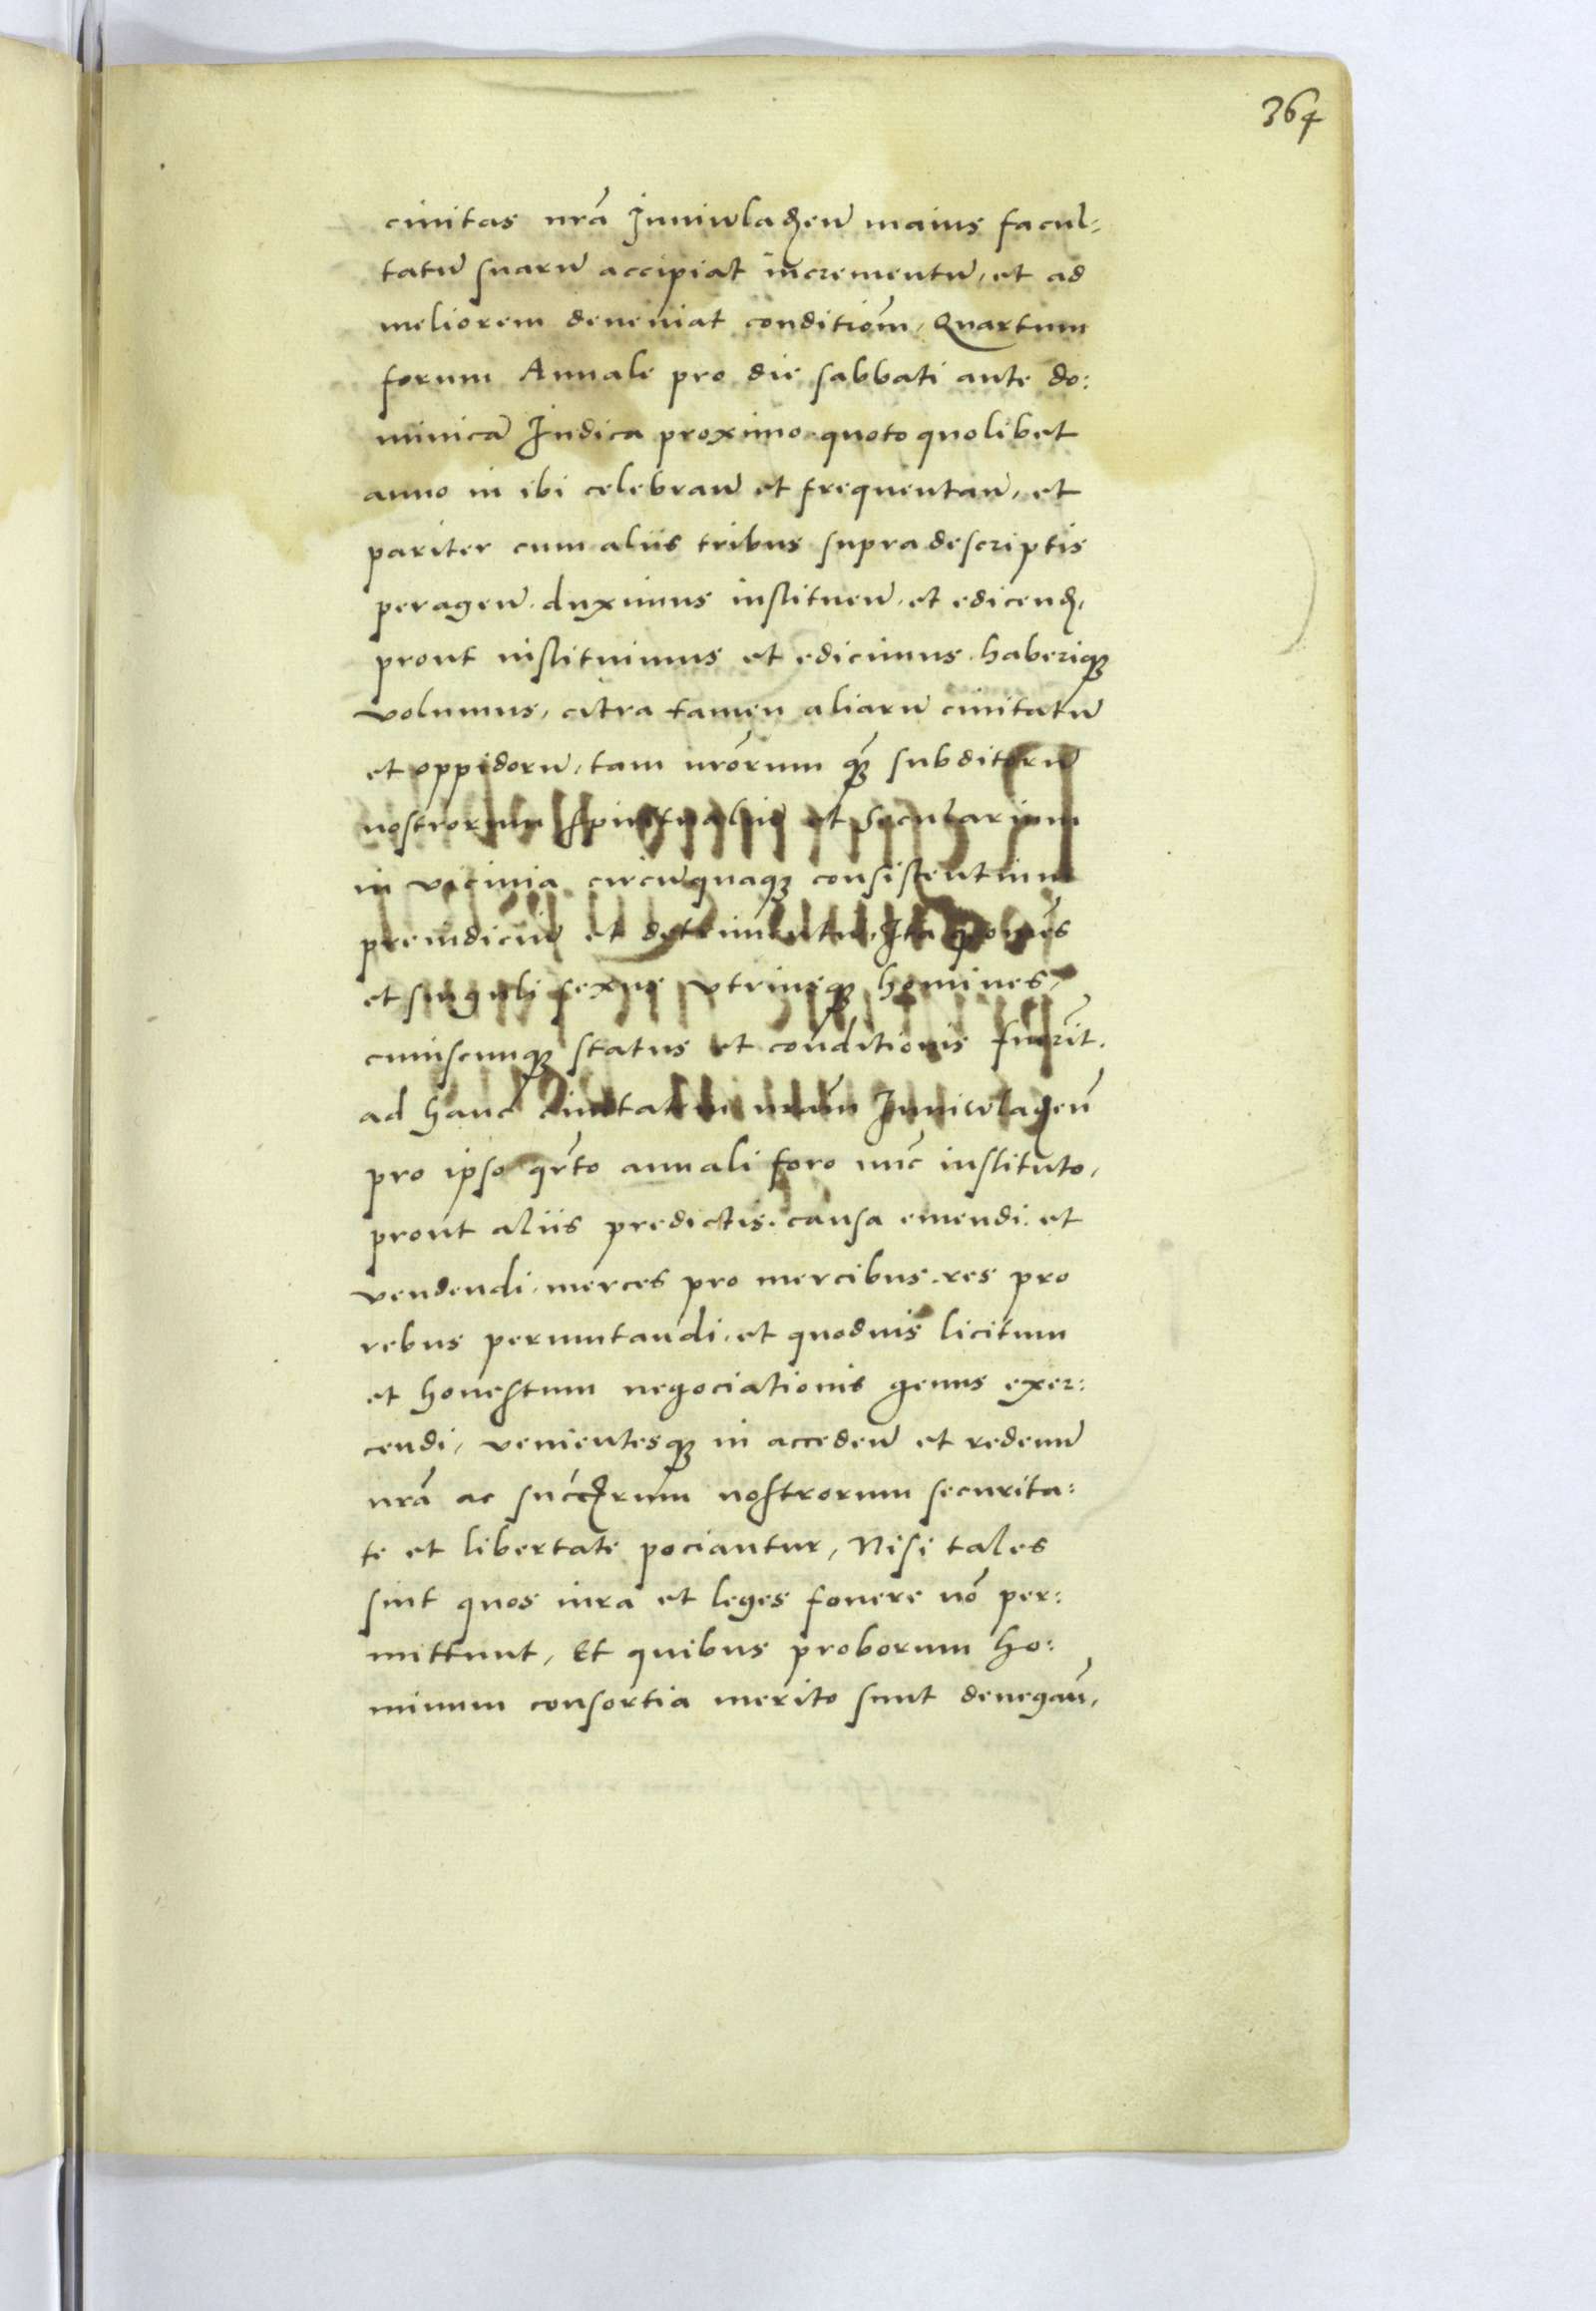 364
ciuitas nrã Iuniwladẽn maius facul-
tatũ suarũ accipiat incrementũ, et ad
meliorem deueniat conditiõm, Quartum
forum Annale pro die sabbati ante do:
minicã Iudica proximo quoto quolibet
anno in ibi celebran̄ et frequentan̄, et
pariter cum aliis tribus supradescriptis
peragen̄. duximus instituen̄. et edicend,
prout instituimus et edicimus haberiqȝ
volumus, citra tamen aliarũ ciuitatũ
et oppidorũ, tam nrõrum qȝ̃ subditorũ
nostrorum spiritualiũ et secularium
in vicinia circũquaqȝ consistentium
preiudiciũ et detrimentũ, Ita q̃ om̃es
et singuli sexus vtriusqȝ homines,
cuiuscunqȝ status et conditionis fuerĩt.
ad hanc ciuitatem nrãm Iuniwladẽn
pro ipso qr̃to annali foro nũc instituto,
prout aliis predictis. causa emendi. et
vendendi. merces pro mercibus. res pro
rebus permutandi. et quoduis licitum
et honestum negociationis genus exer:
cendi, venientesqȝ in acceden̄ et redeun̄
nrã ac succ̃rum nostrorum securita:
te et libertate pociantur, Nisi tales
sint quos iura et leges fouere nõ per:
mittunt, Et quibus proborum ho:
minum consortia merito sunt denegan̄,